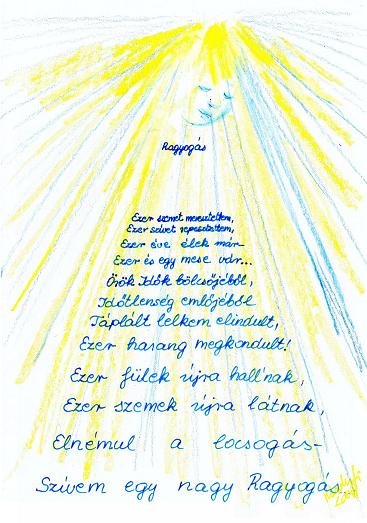 Ragyogás
Ezer szemet meresztettem,
Ezer szívet repesztettem,
Ezer éve élek már-
Ezer és egy mese vár...
Örök Idők bölcsőjéből,
Időtlenség emlőjéből
Táplált lelkem elindult,
Ezer harang megkondult!
Ezer fülek újra hall'nak,
Ezer szemek újra látnak,
Elnémul a locsogás-
Szívem egy nagy Ragyogás.